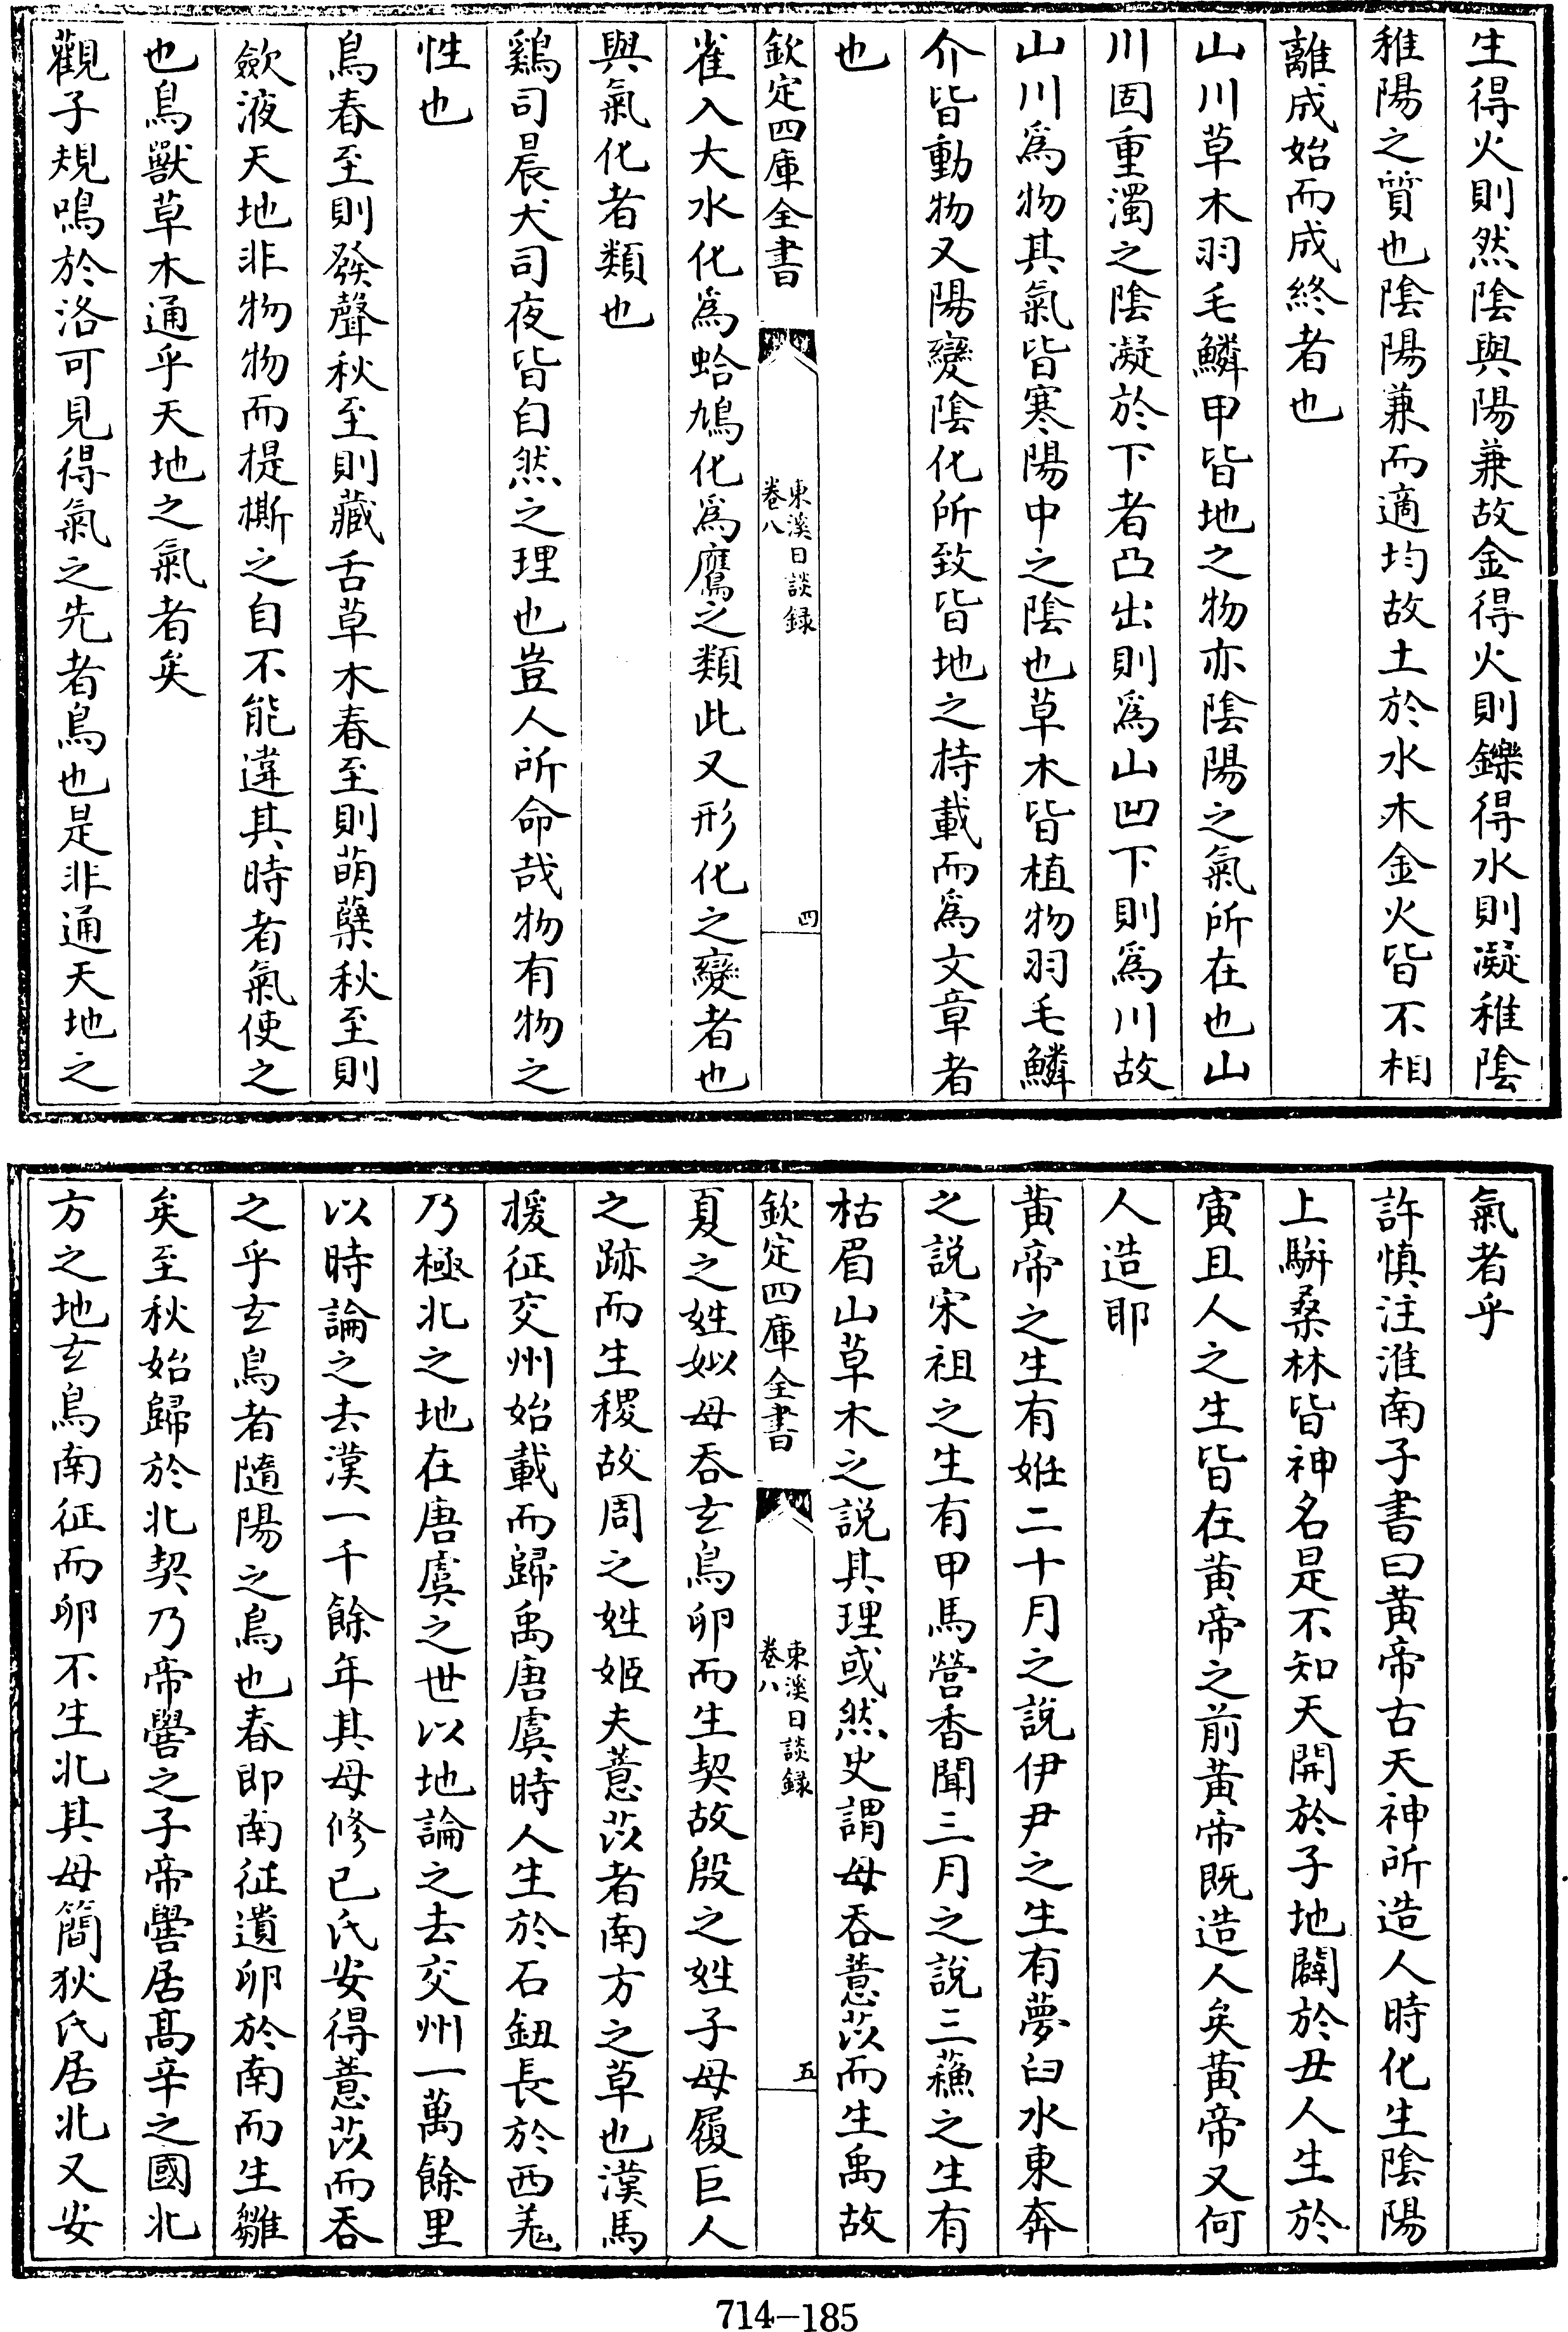 生得火則然陰與陽兼故金得火則鑠得水則凝稚陰
稚陽之質也陰陽兼而適均故土於水木金火皆不相
離成始而成終者也
山川草木羽毛鱗甲皆地之物亦陰陽之氣所在也山
川固重濁之陰凝於下者凸出則爲山凹下則爲川故
山川爲物其氣皆寒陽中之陰也草木皆植物羽毛鱗
介皆動物又陽變陰化所致皆地之持載而爲文章者
也
欽定四庫全書
東溪日談録
卷八
四
雀入大水化爲蛤鳩化爲鷹之類此又形化之變者也
與氣化者類也
鷄司晨犬司夜皆自然之理也豈人所命哉物有物之
性也
鳥春至則發聲秋至則藏舌草木春至則萌蘖秋至則
歛液天地非物物而提撕之自不能違其時者氣使之
也鳥獸草木通乎天地之氣者矣
觀子規鳴於洛可見得氣之先者鳥也是非通天地之
氣者乎
許慎注淮南子書曰黄帝古天神所造人時化生陰陽
上駢桑林皆神名是不知天開於子地闢於丑人生於
寅且人之生皆在黄帝之前黄帝既造人矣黄帝又何
人造耶
黄帝之生有姙二十月之說伊尹之生有夢臼水東奔
之說宋祖之生有甲馬營香聞三月之說三蘓之生有
枯眉山草木之說其理或然史謂母吞薏苡而生禹故
欽定四庫全書
東溪日談録
卷八
五
夏之姓姒母吞玄鳥卵而生契故殷之姓子母履巨人
之跡而生稷故周之姓姬夫薏苡者南方之草也漢馬
援征交州始載而歸禹唐虞時人生於石鈕長於西羌
乃極北之地在唐虞之世以地論之去交州一萬餘里
以時論之去漢一千餘年其母修己氏安得薏苡而吞
之乎玄鳥者隨陽之鳥也春即南征遺卵於南而生雛
矣至秋始歸於北契乃帝嚳之子帝嚳居髙辛之國北
方之地玄鳥南征而卵不生北其母簡狄氏居北又安
714-185